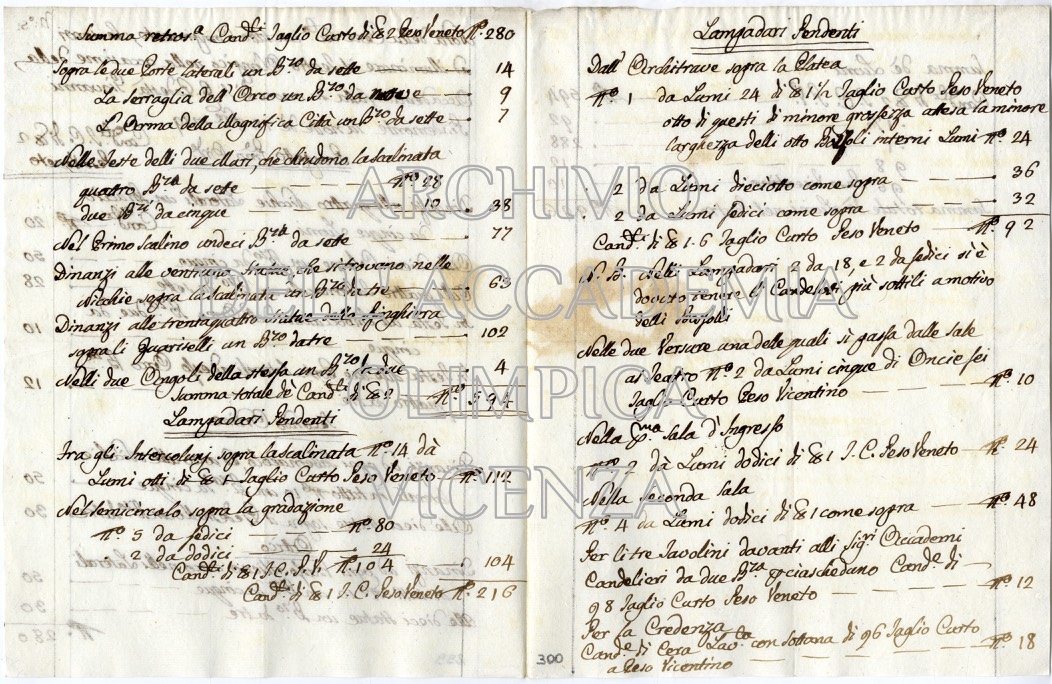 Summa retros.ª Cand.le Taglio Curto di ℔ 2 Peso Veneto N.º 280
Sopra le due Porte laterali un B.zo da sette — 14
La Serraglia dell' Orco un B.zo da nove — 9
L'Orma della Magnifica Città un B.zo da sette — 7
Nelle Teste delli due Mari, che chiudono la scalinata
quattro B.za da sette — N.º 28
due B.zi da cinque — 10 — 38
Nel Primo Scalino undeci B.za da sette — 77
Dinanzi alle ventruna statue, che si trovano nelle
Nicchie sopra la scalinata un B.zo da tre — 63
Dinanzi alle trentaquattro statue della Ringhiera
sopra li Quariselli un B.zo da tre — 102
Nelli due Cingoli della stessa un B.zo da due — 4
Summa totale de Cand.le di ℔ 2 — N.º 594
Lampadari Pendenti
Fra gli Intercolunj sopra la scalinata N.º 14 dà
Lumi otti di ℔ 1 Taglio Curto Peso Veneto N.º 112
Nel semicircolo sopra la gradazione
N.º 5 da sedici — N.º 80
2 da dodici — 24
Cand.le di ℔ 1 T. C. P. V. N.º 104 — 104
Cand.le di ℔ 1 T. C. Peso Veneto N.º 216
Lampadari Pendenti
Dall' Architrave sopra la Platea
N.º 1 — da Lumi 24 di ℔ 1½ Taglio Curto Peso Veneto
otto di questi di minore grossezza attesa la minore
larghezza delli otto Bossoli interni Lumi N.º 24
2 da Lumi dieciotto come sopra — 36
2 da Lumi sedici come sopra — 32
Cand.le di ℔ 1.6 Taglio Curto Peso Veneto — N.º 92
N. B. Nelli Lampadari 2 da 18, e 2 da sedici si è
dovuto tenere le Candelotti più sottili a motivo
delli Bossoli
Nelle due Versure una delle quali si passa dalle Sale
al Teatro N.º 2 da Lumi cinque di Oncie sei
Taglio Curto Peso Vicentino — N.º 10
Nella P.ma Sala d'Ingresso
N.º 2 dà Lumi dodici di ℔ 1 T. C. Peso Veneto — N.º 24
Nella Seconda Sala
N.º 4 da Lumi dodici di ℔ 1 come sopra — N.º 48
Per li tre Tavolini davanti alli Sig.ri Accademi
Candelieri da due B.za p ciascheduno Cand.le di —
98 Taglio Curto Peso Veneto — N.º 12
Per la Credenza
Cand.e di Cera Lav.ta con sottana di 96 Taglio Curto
a Peso Vicentino — N.º 18
300
ARCHIVIO
DELL'ACCADEMIA
OLIMPICA
VICENZA